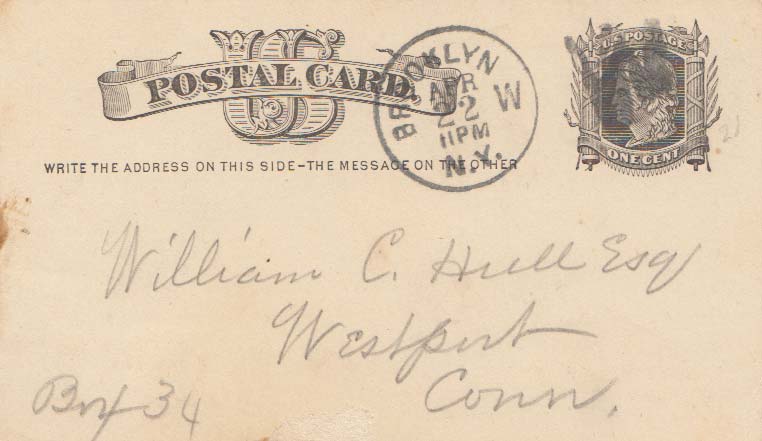 U.S. POSTAGE
US
POSTAL CARD.
BROOKLYN
APR
22 W
11 PM
N.Y.
ONE CENT
WRITE THE ADDRESS ON THIS SIDE-THE MESSAGE ON THE OTHER
William C. Hull Esq
Westport
Conn.
Box 34
21